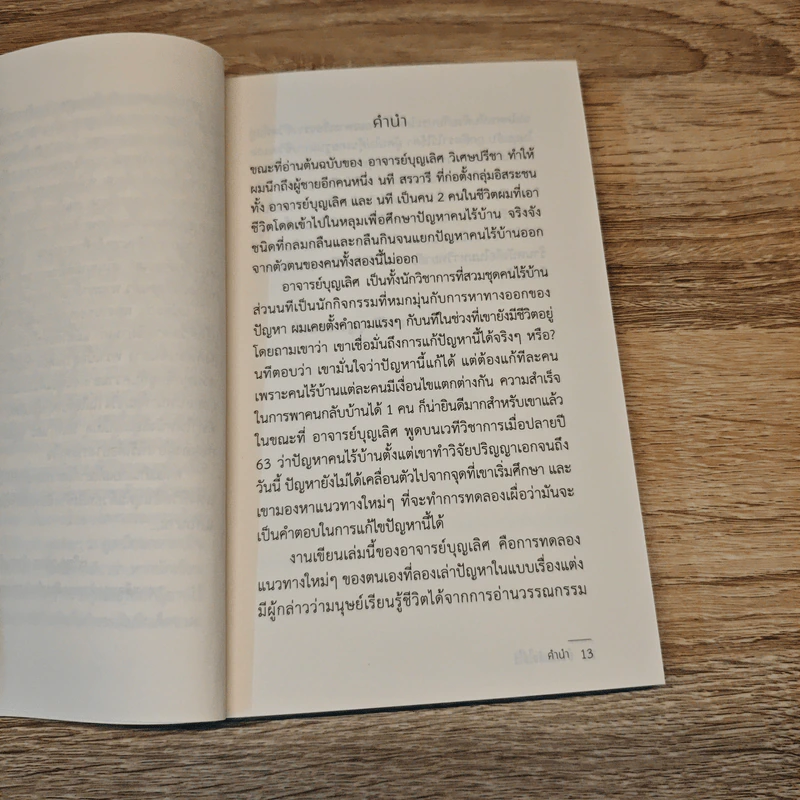 คำนำ
ขณะที่อ่านต้นฉบับของ อาจารย์บุญเลิศ วิเศษปรีชา ทำให้
ผมนึกถึงผู้ชายอีกคนหนึ่ง นที สรวารี ที่ก่อตั้งกลุ่มอิสระชน
ทั้ง อาจารย์บุญเลิศ และ นที เป็นคน 2 คนในชีวิตผมที่เอา
ชีวิตโดดเข้าไปในหลุมเพื่อศึกษาปัญหาคนไร้บ้าน จริงจัง
ชนิดที่กลมกลืนและกลืนกินจนแยกปัญหาคนไร้บ้านออก
จากตัวตนของคนทั้งสองนี้ไม่ออก
อาจารย์บุญเลิศ เป็นทั้งนักวิชาการที่สวมชุดคนไร้บ้าน
ส่วนนทีเป็นนักกิจกรรมที่หมกมุ่นกับการหาทางออกของ
ปัญหา ผมเคยตั้งคำถามแรงๆ กับนทีในช่วงที่เขายังมีชีวิตอยู่
โดยถามเขาว่า เขาเชื่อมั่นถึงการแก้ปัญหานี้ได้จริงๆ หรือ?
นทีตอบว่า เขามั่นใจว่าปัญหานี้แก้ได้ แต่ต้องแก้ทีละคน
เพราะคนไร้บ้านแต่ละคนมีเงื่อนไขแตกต่างกัน ความสำเร็จ
ในการพาคนกลับบ้านได้ 1 คน ก็น่ายินดีมากสำหรับเขาแล้ว
ในขณะที่ อาจารย์บุญเลิศ พูดบนเวทีวิชาการเมื่อปลายปี
63 ว่าปัญหาคนไร้บ้านตั้งแต่เขาทำวิจัยปริญญาเอกจนถึง
วันนี้ ปัญหายังไม่ได้เคลื่อนตัวไปจากจุดที่เขาเริ่มศึกษา และ
เขามองหาแนวทางใหม่ๆ ที่จะทำการทดลองเผื่อว่ามันจะ
เป็นคำตอบในการแก้ไขปัญหานี้ได้
งานเขียนเล่มนี้ของอาจารย์บุญเลิศ คือการทดลอง
แนวทางใหม่ๆ ของตนเองที่ลองเล่าปัญหาในแบบเรื่องแต่ง
มีผู้กล่าวว่ามนุษย์เรียนรู้ชีวิตได้จากการอ่านวรรณกรรม
คำนำ 13